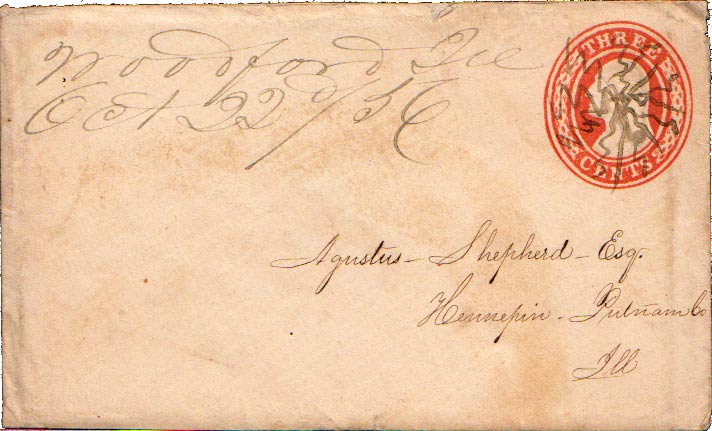 Woodford Ill
Oct 22d/56
THREE
CENTS
Agustus - Shepherd - Esq.
Hennepin - Putnam Co
Ill